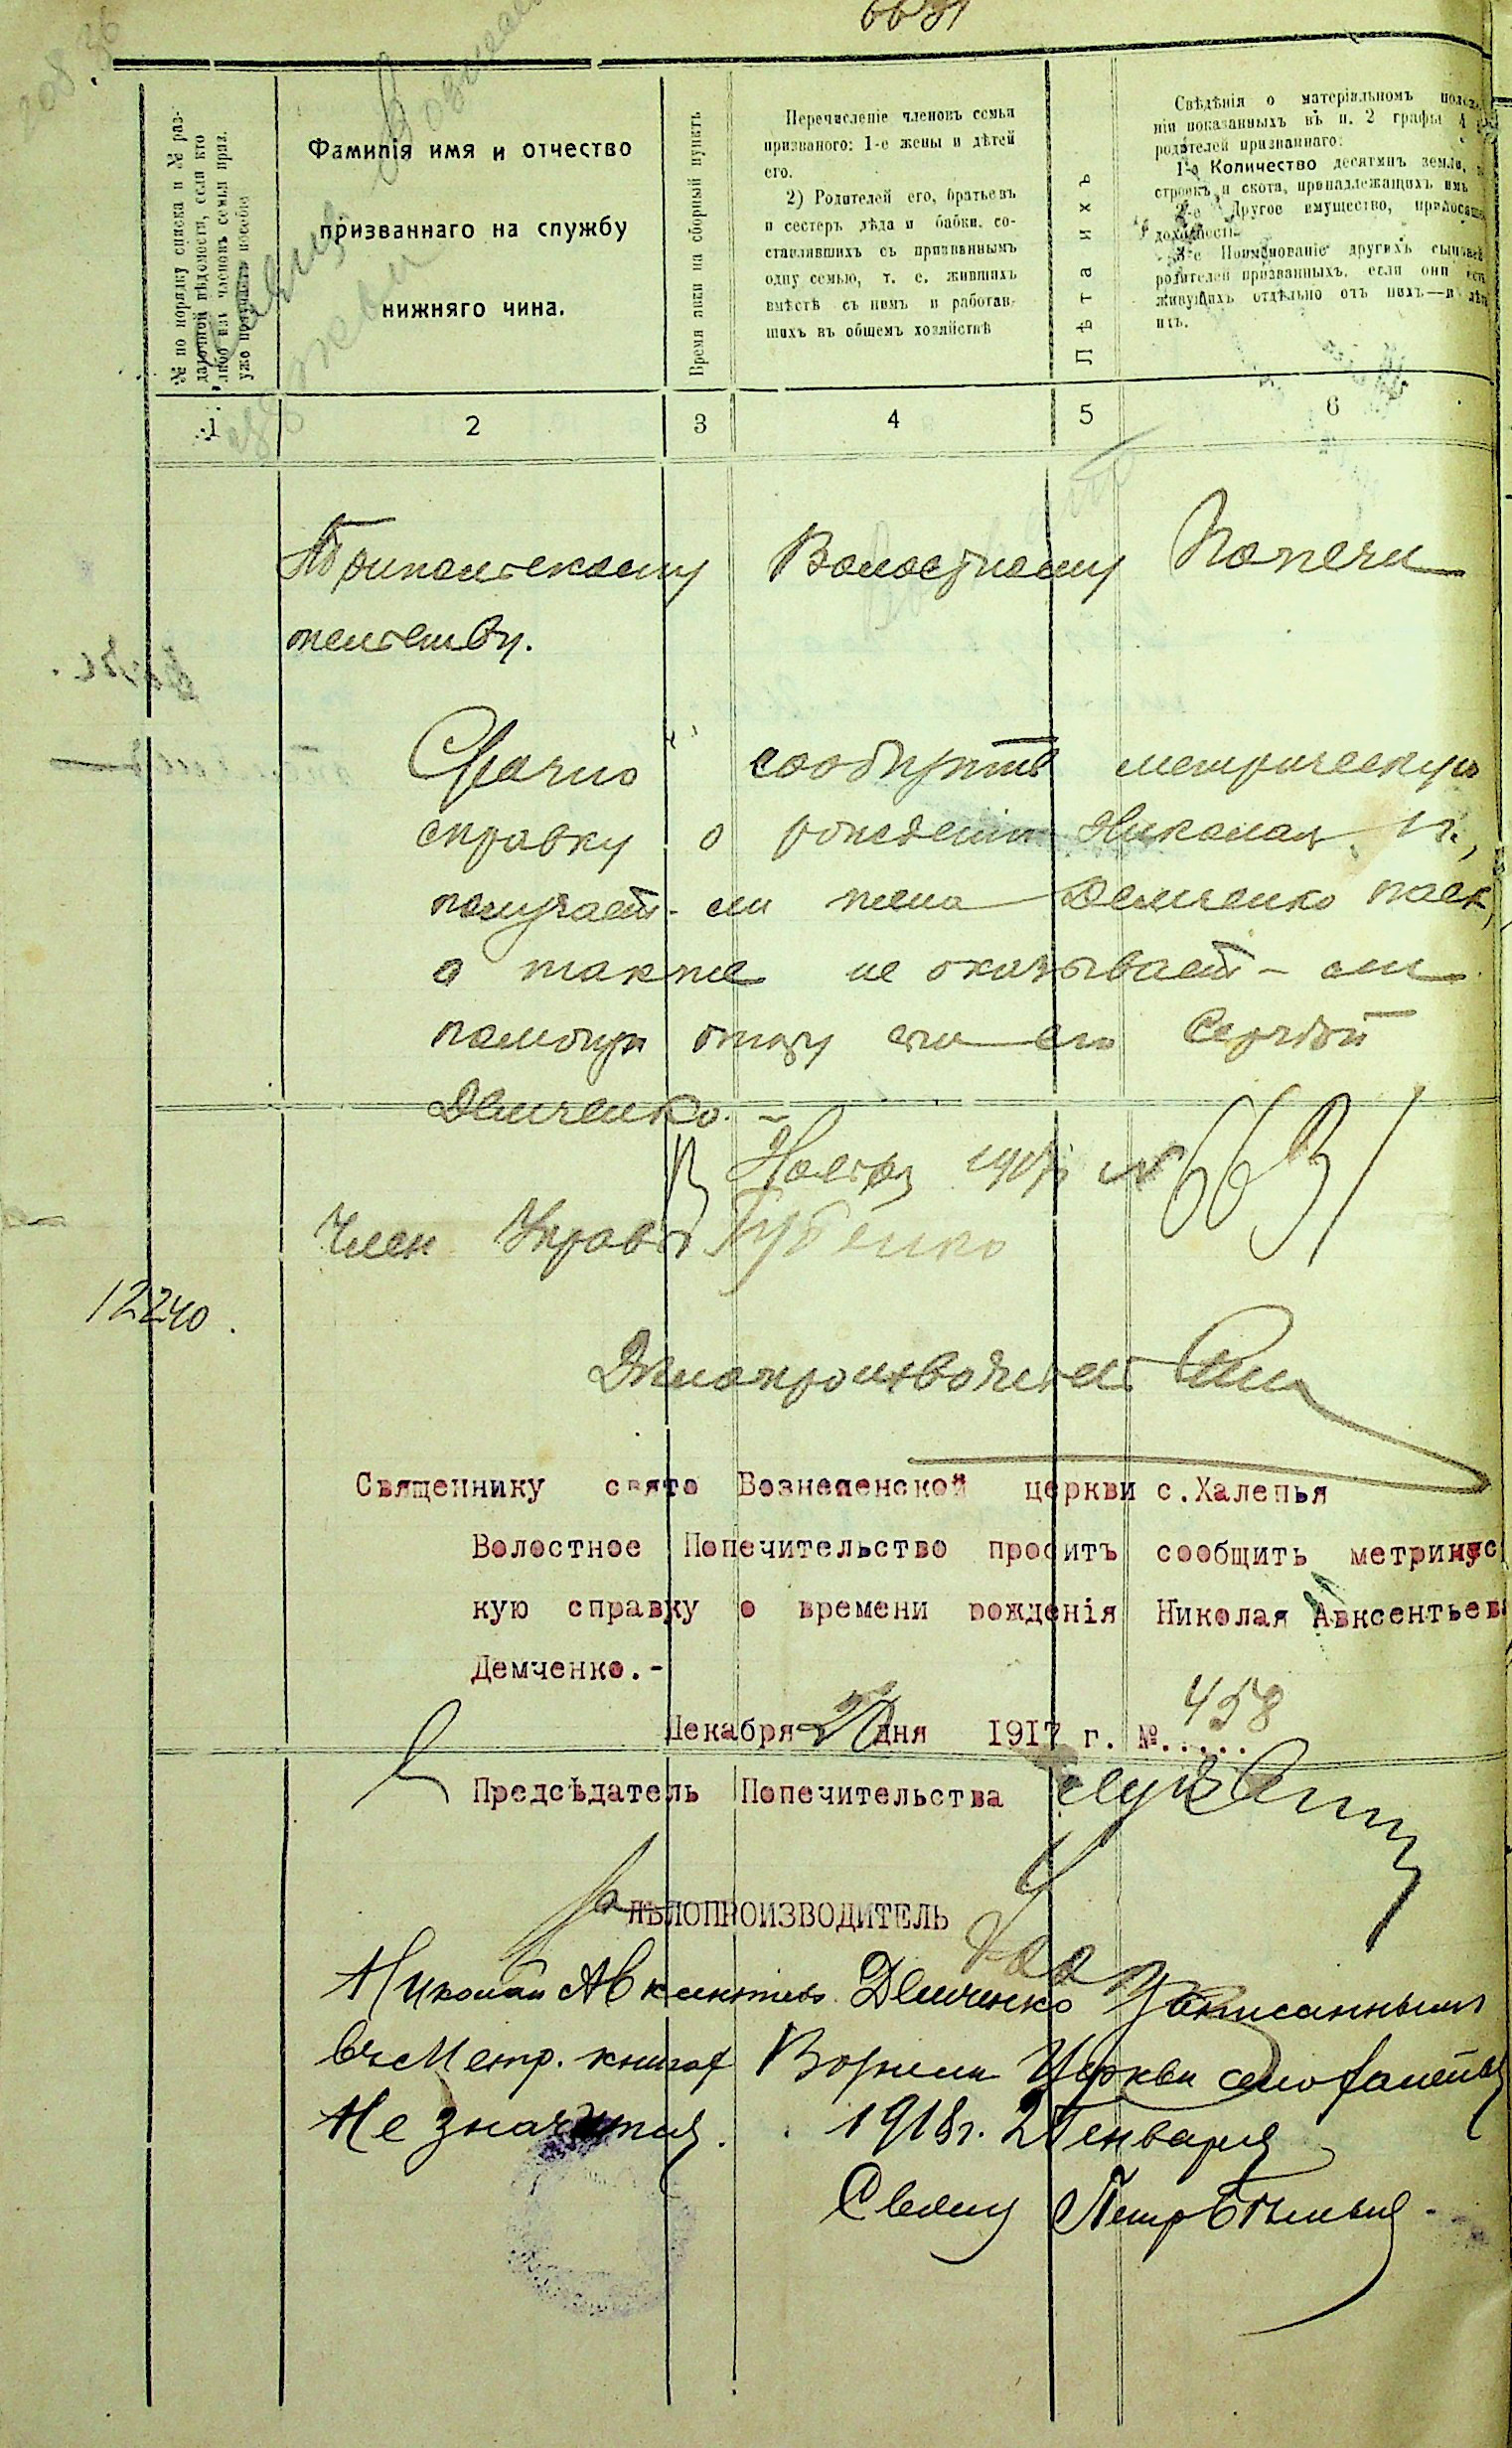 6631
№ по порядку списка и № раз-
даточной вѣдомости, если кто
либо изъ членовъ семьи приз.
уже получаетъ пособіе
Фамилія имя и отчество
призваннаго на службу
нижняго чина.
Время явки на сборный пунктъ
Перечисленіе членовъ семьи
призваного: 1-е жены и дѣтей
его.
2) Родителей его, братьевъ
и сестеръ дѣда и бабки, со-
ставлявшихъ съ призваннымъ
одну семью, т. е. жившихъ
вмѣстѣ съ нимъ и работав-
шихъ въ общемъ хозяйствѣ
Лѣта ихъ
Свѣдѣнія о матеріальномъ
ніи показанныхъ въ п. 2 графы 4
родителей призваннаго:
1-е Количество десятинъ земли,
строекъ и скота, принадлежащихъ имъ
2-е Другое имущество,
доходность.
3-е Поименованіе другихъ сыновей
родителей призванныхъ, если они есть
живущихъ отдѣльно отъ нихъ—и
ихъ.
1 2 3 4 5 6
Трипольскому Волостному Попечи
тельству.
Срочно сообщить метрическую
справку о рожденіи Николая,
получаетъ-ли жена Демченко паек,
а также не оказывает-ли
помощи отцу Сергѣй
Демченко.-
13 Ноября 1917 № 6631
Член Управы Губенко
12240.
Дѣлопроизводитель
Священнику свято Вознесенской церкви с.Халепья
Волостное Попечительство проситъ сообщить метричес
кую справку о времени рожденія Николая Авксентьева
Демченко.-
Декабря 20 дня 1917 г. №..... 458
Предсѣдатель Попечительства
ДѢЛОПРОИЗВОДИТЕЛЬ
Николай Авксентіевъ Демченко Записаннымъ
въ Метр. книгах Вознесен Церкви село Халепья
Не значится. 1918г. 2 Генваря
Священ Петръ